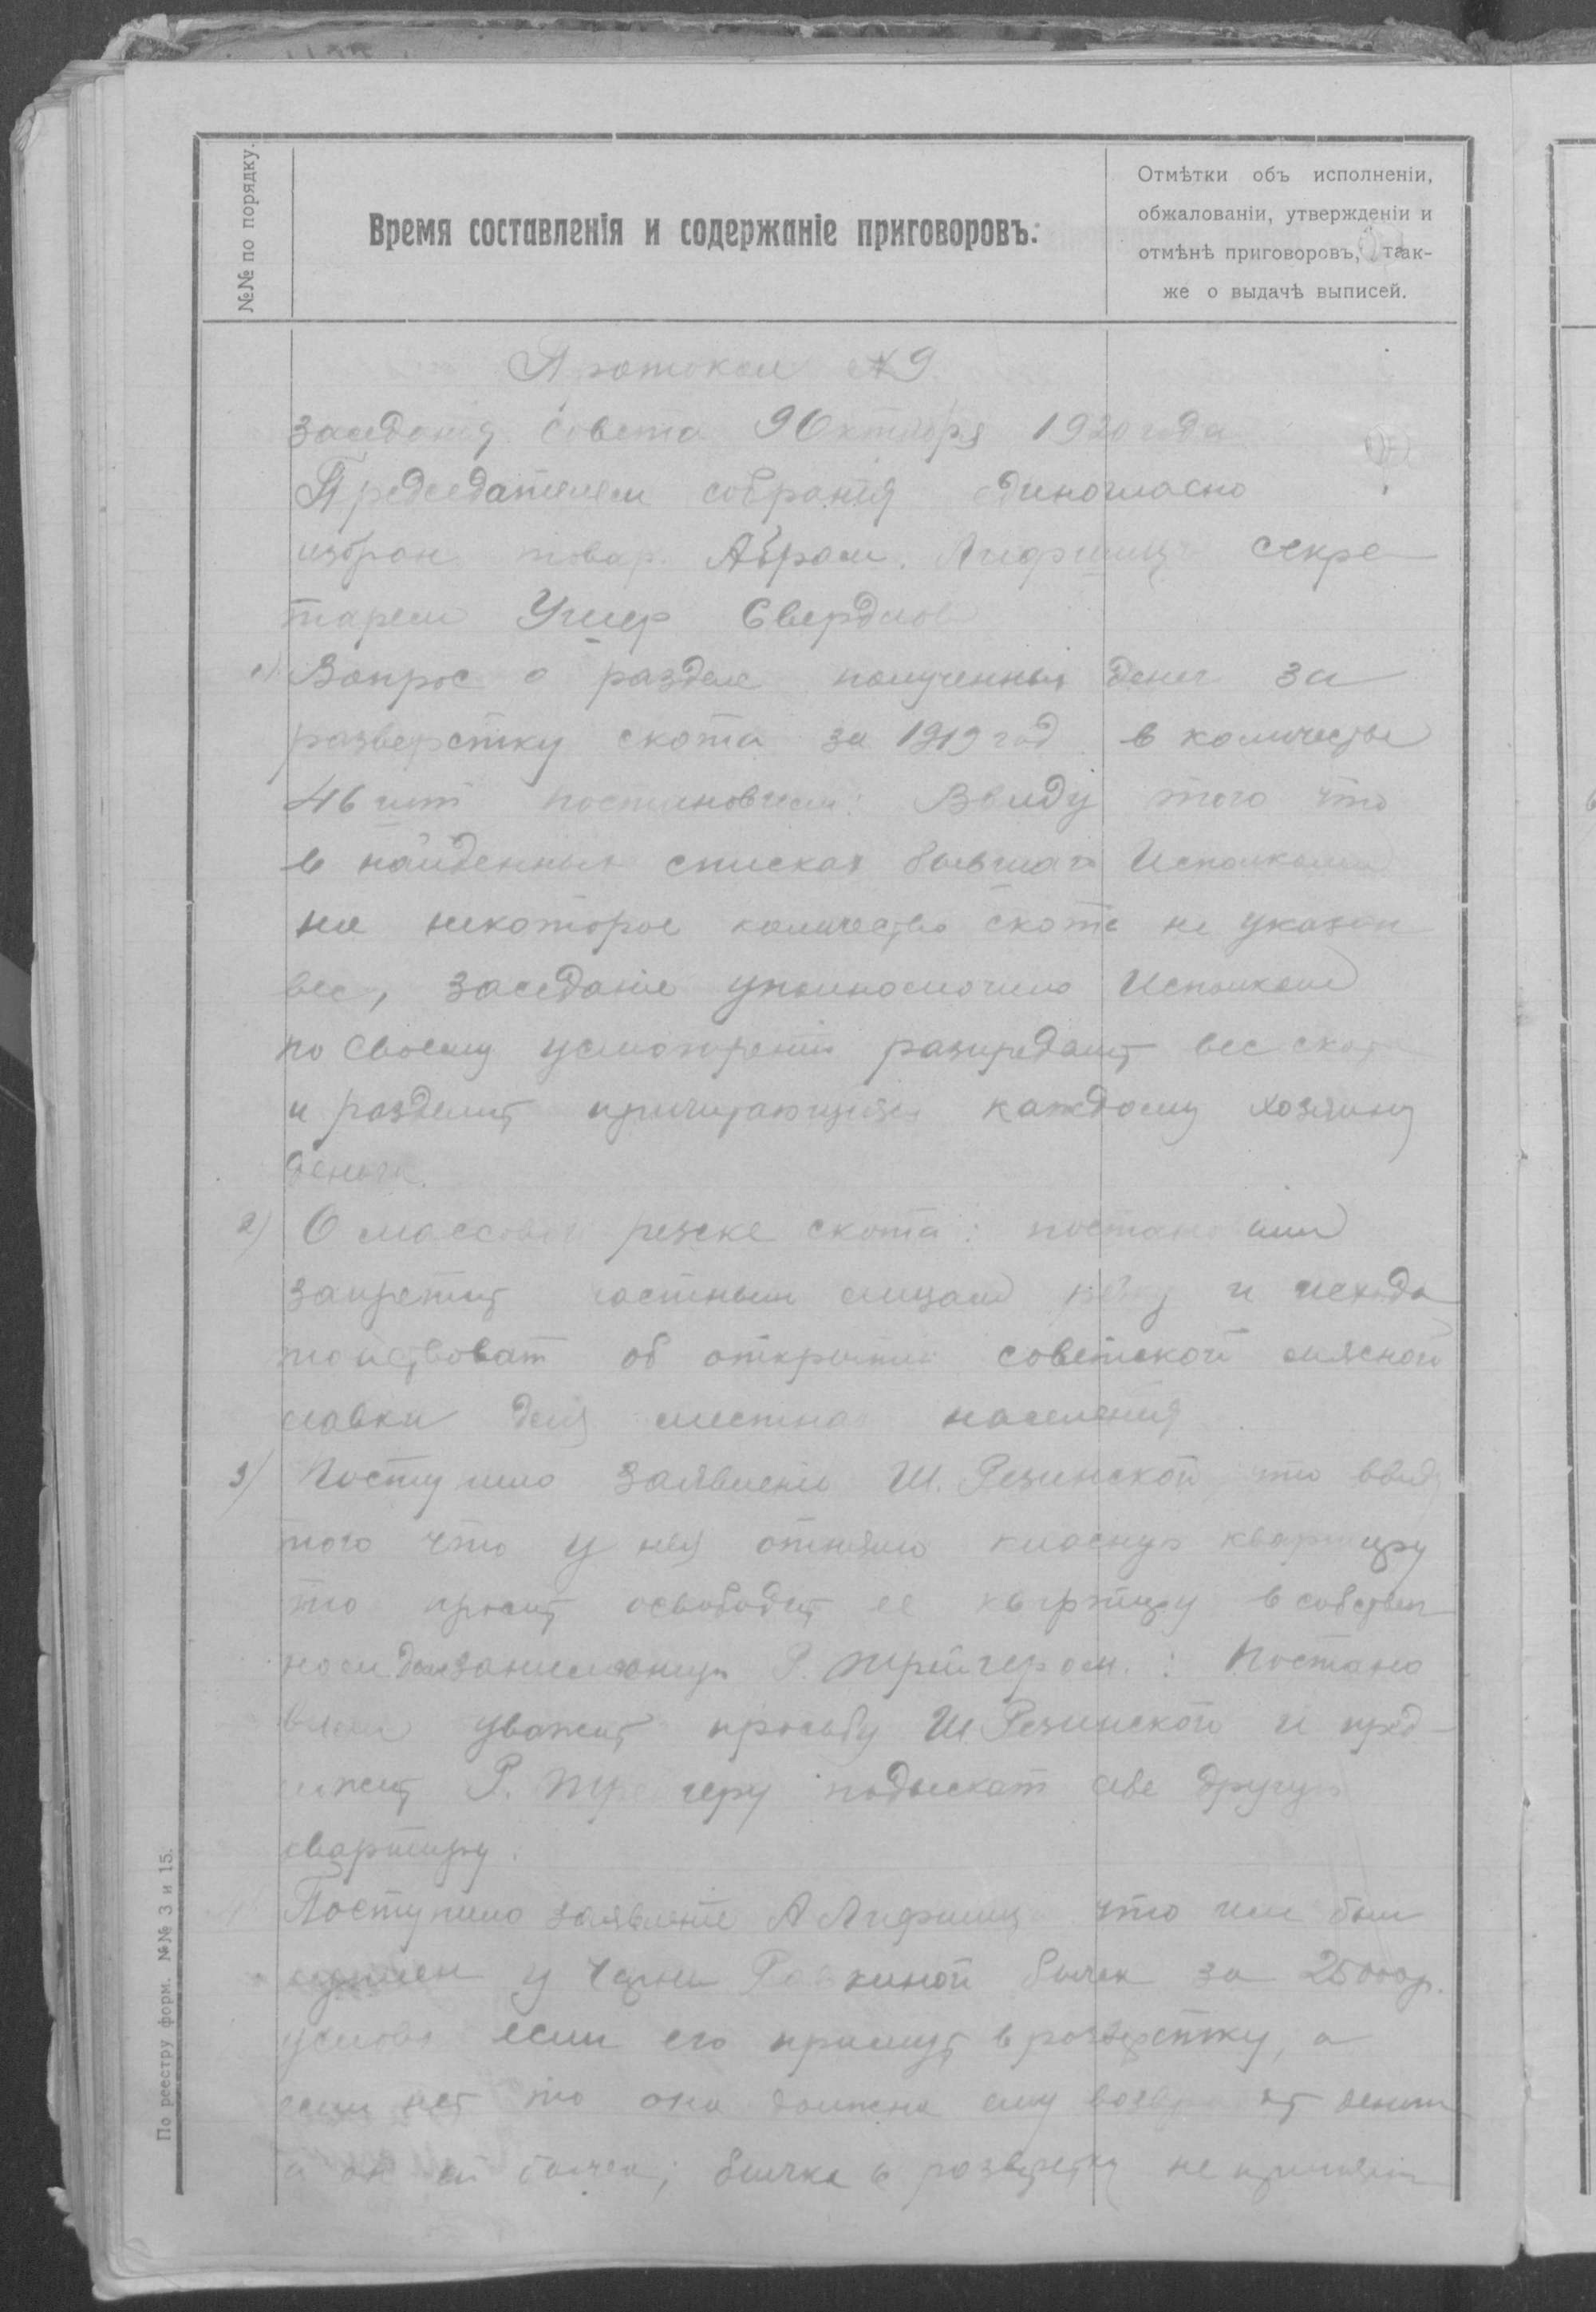 №№ по порядку.
Время составленія и содержаніе приговоровъ.
Отмѣтки объ исполненіи,
обжалованіи, утвержденіи и
отмѣнѣ приговоровъ, так-
же о выдачѣ выписей.
Протокол № 9
заседанія Совета 9 Октября 1920 года
Председателем собранія единогласно
избран товар. Абрам. Лифшиц секре
тарем Ушер Свердлов
1) Вопрос о разделе полученных денег за
разверстку скота за 1919 год в количестве
46 шт постановили: Ввиду того что
в найденных списках бывшаго Исполкома
на некоторое количество скота не указан
вес, заседаніе уполномочило Исполком
по своему усмотрению вес скота
и разделит каждому хозяину
деньги.
2) О массовой резке скота: постановили
запретит частным лицам резку и исхода
тойствоват об открытии советской мясной
лавки для населенія
3) Поступило заявление Ш. Резинской, что ввиду
того что у нея отняли квартиру
то просит освободит ее квартиру в собствен
ном доме Р. : Постано
вили уважит просьбу Ш Резинской и пред
ложит Р. подыскат себе другую
квартиру.
Поступило заявленіе А Лифшиц что им был
куплен у бычек за 25000 р.
если его примут в розверстку, а
если нет то она должна ему деньги
а он ей бычка; бычка в розверстку не приняли
По реестру форм. №№ 3 и 15.